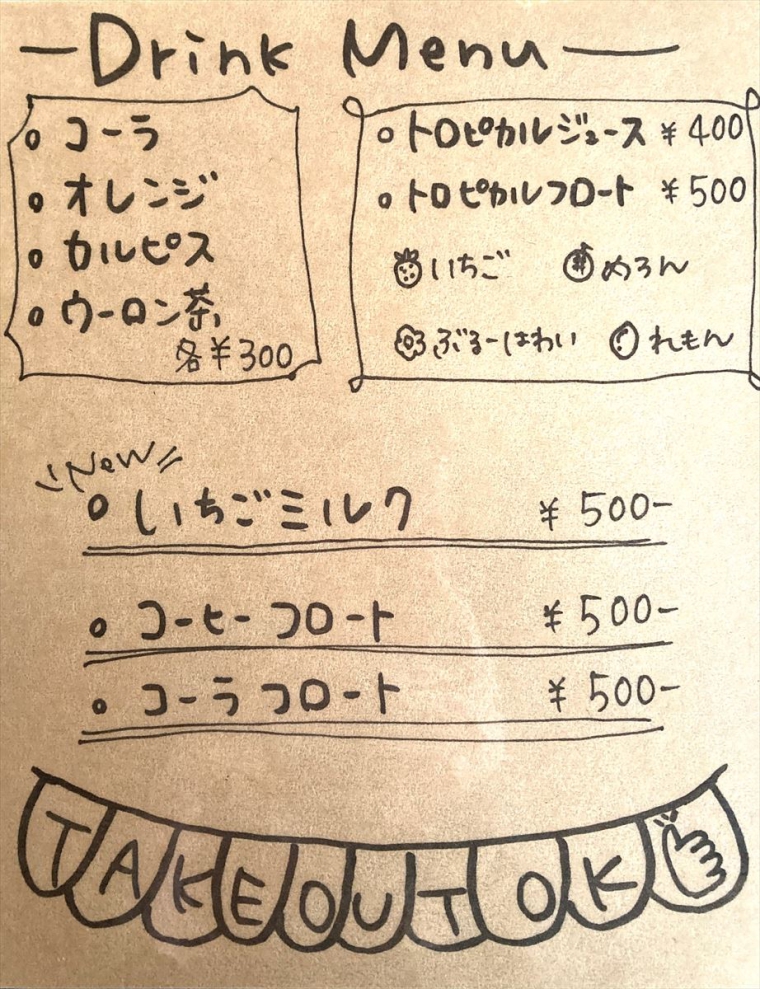 Drink Menu
コーラ
オレンジ
カルピス
ウーロン茶
各¥300
トロピカルジュース ¥400
トロピカルフロート ¥500
いちご めろん
ぶるーはわい れもん
New
いちごミルク ¥500-
コーヒーフロート ¥500-
コーラフロート ¥500-
TAKEOUT OK